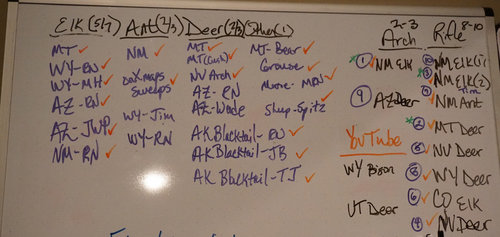 Elk (5/7)
MT ✓
WY-RN ✓
WY-MH ✓
AZ-RN ✓
AZ-JWP ✓
NM-RN ✓
Ant (2/3)
NM ✓
Sweeps ✓
WY-Jim
WY-RN ✓
Deer (2/3)
MT ✓
MT (Cash) ✓
NV Arch ✓
AZ-RN
AZ-Wade
AK Blacktail-RN ✓
AK Blacktail-JB ✓
AK Blacktail-TJ ✓
(1)
MT-Bear ✓
Grouse ✓
Moose-MRN ✓
Shup-Spitz ✓
2-3
Arch
1 NM Elk
9 AZ Deer
YouTube
WY Bison
UT Deer
Rifle 8-10
10 NM Elk (1)
3 NM Elk (2)
Tim
NM Ant
2 MT Deer
5 NV Deer
8 WY Deer
6 CO Elk
4 NV Deer